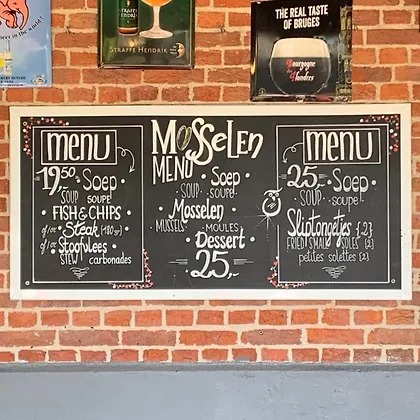 STRAFFE HENDRIK
THE REAL TASTE
OF BRUGES
Bourgogne
des
Flandres
menu
19,50 Soep
SOUP SOUPE!
FISH & CHIPS
of/or Steak (180gr)
of/or Stoofvlees
STEW carbonades
MOSSELEN
MENU
Soep
SOUP SOUPE!
Mosselen
MUSSELS MOULES
Dessert
25,-
menu
25,- Soep
SOUP SOUPE!
Sliptongetjes {2}
FRIED SMALL SOLES {2}
petites solettes {2}